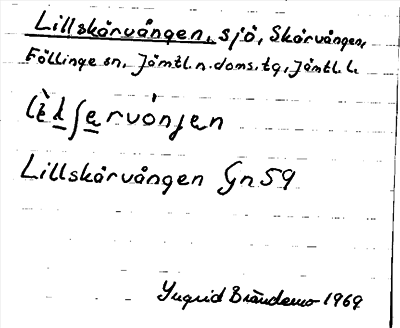 Lillskårvången, sjö, Skårvången,
Föllinge sn, Jämtl. n. doms. tg, Jämtl. l.
Lillskårvången Gn 59
Yngrid Brändemo 1969